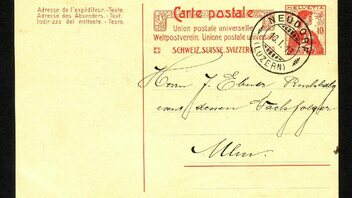 Adresse de l'expéditeur.-Texte.
Adresse des Absenders.-Text.
Indirizzo del mittente.-Testo.
Carte postale
Union postale universelle.
Weltpostverein. Unione postale universale
SCHWEIZ.SUISSE.SVIZZERA
HELVETIA
10
NEUDORF
(LUZERN)
Herrn J. Ebner Buchhdlg
evens dessen Nachfolger
Ulm.